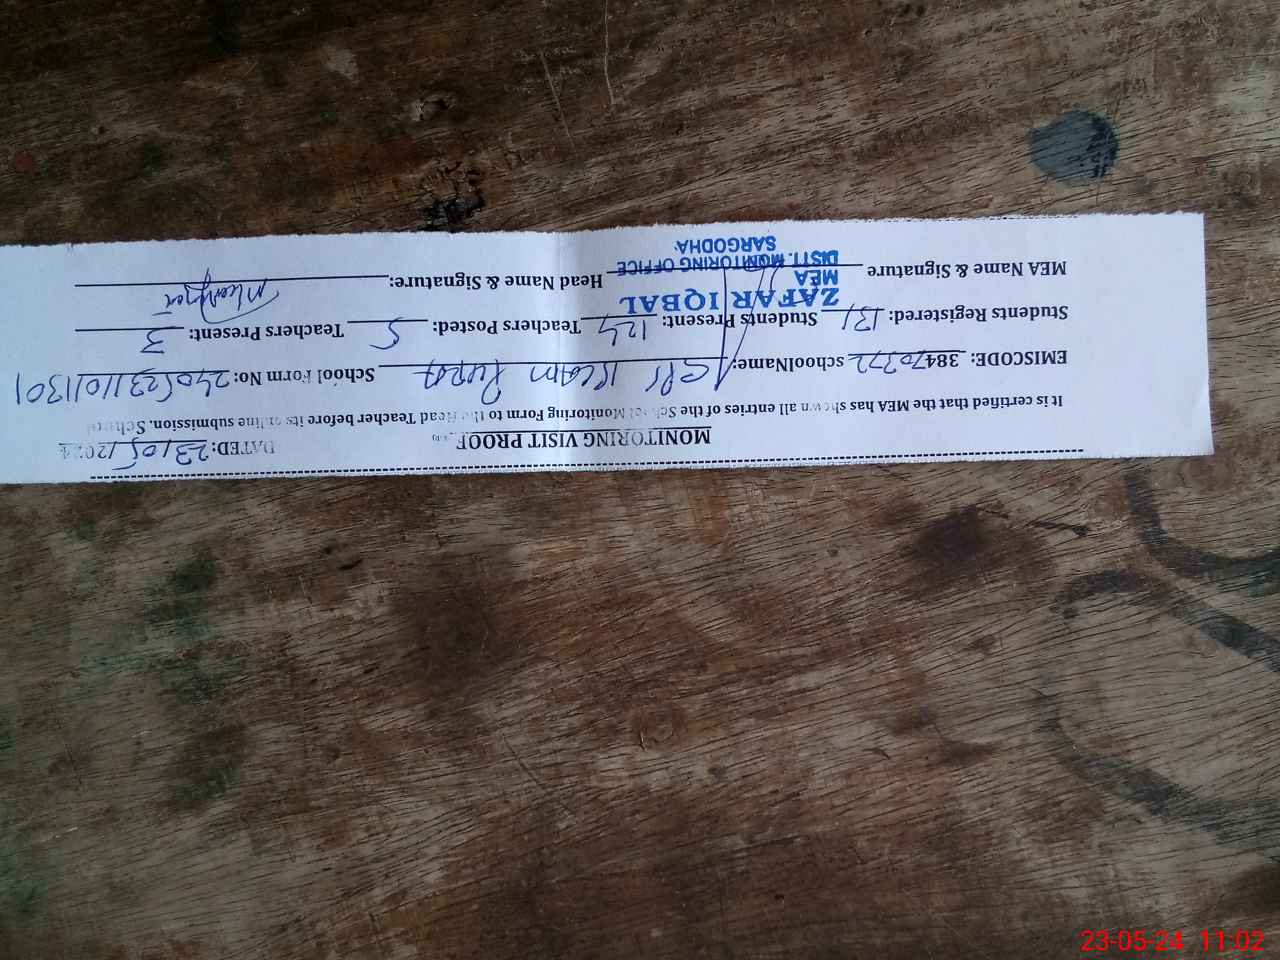 MONITORING VISIT PROOF
DATED: 23/05/2024
It is certified that the MEA has shown all entries of the School Monitoring Form to the Head Teacher before its online submission.
EMISCODE: 38470372 schoolName: School Form No:
Students Registered: 131 Students Present: 124 Teachers Posted: 5 Teachers Present: 3
MEA Name & Signature Head Name & Signature:
ZAFAR IQBAL
MEA
DISTT. MONITORING OFFICE
SARGODHA.
23-05-24 11:02